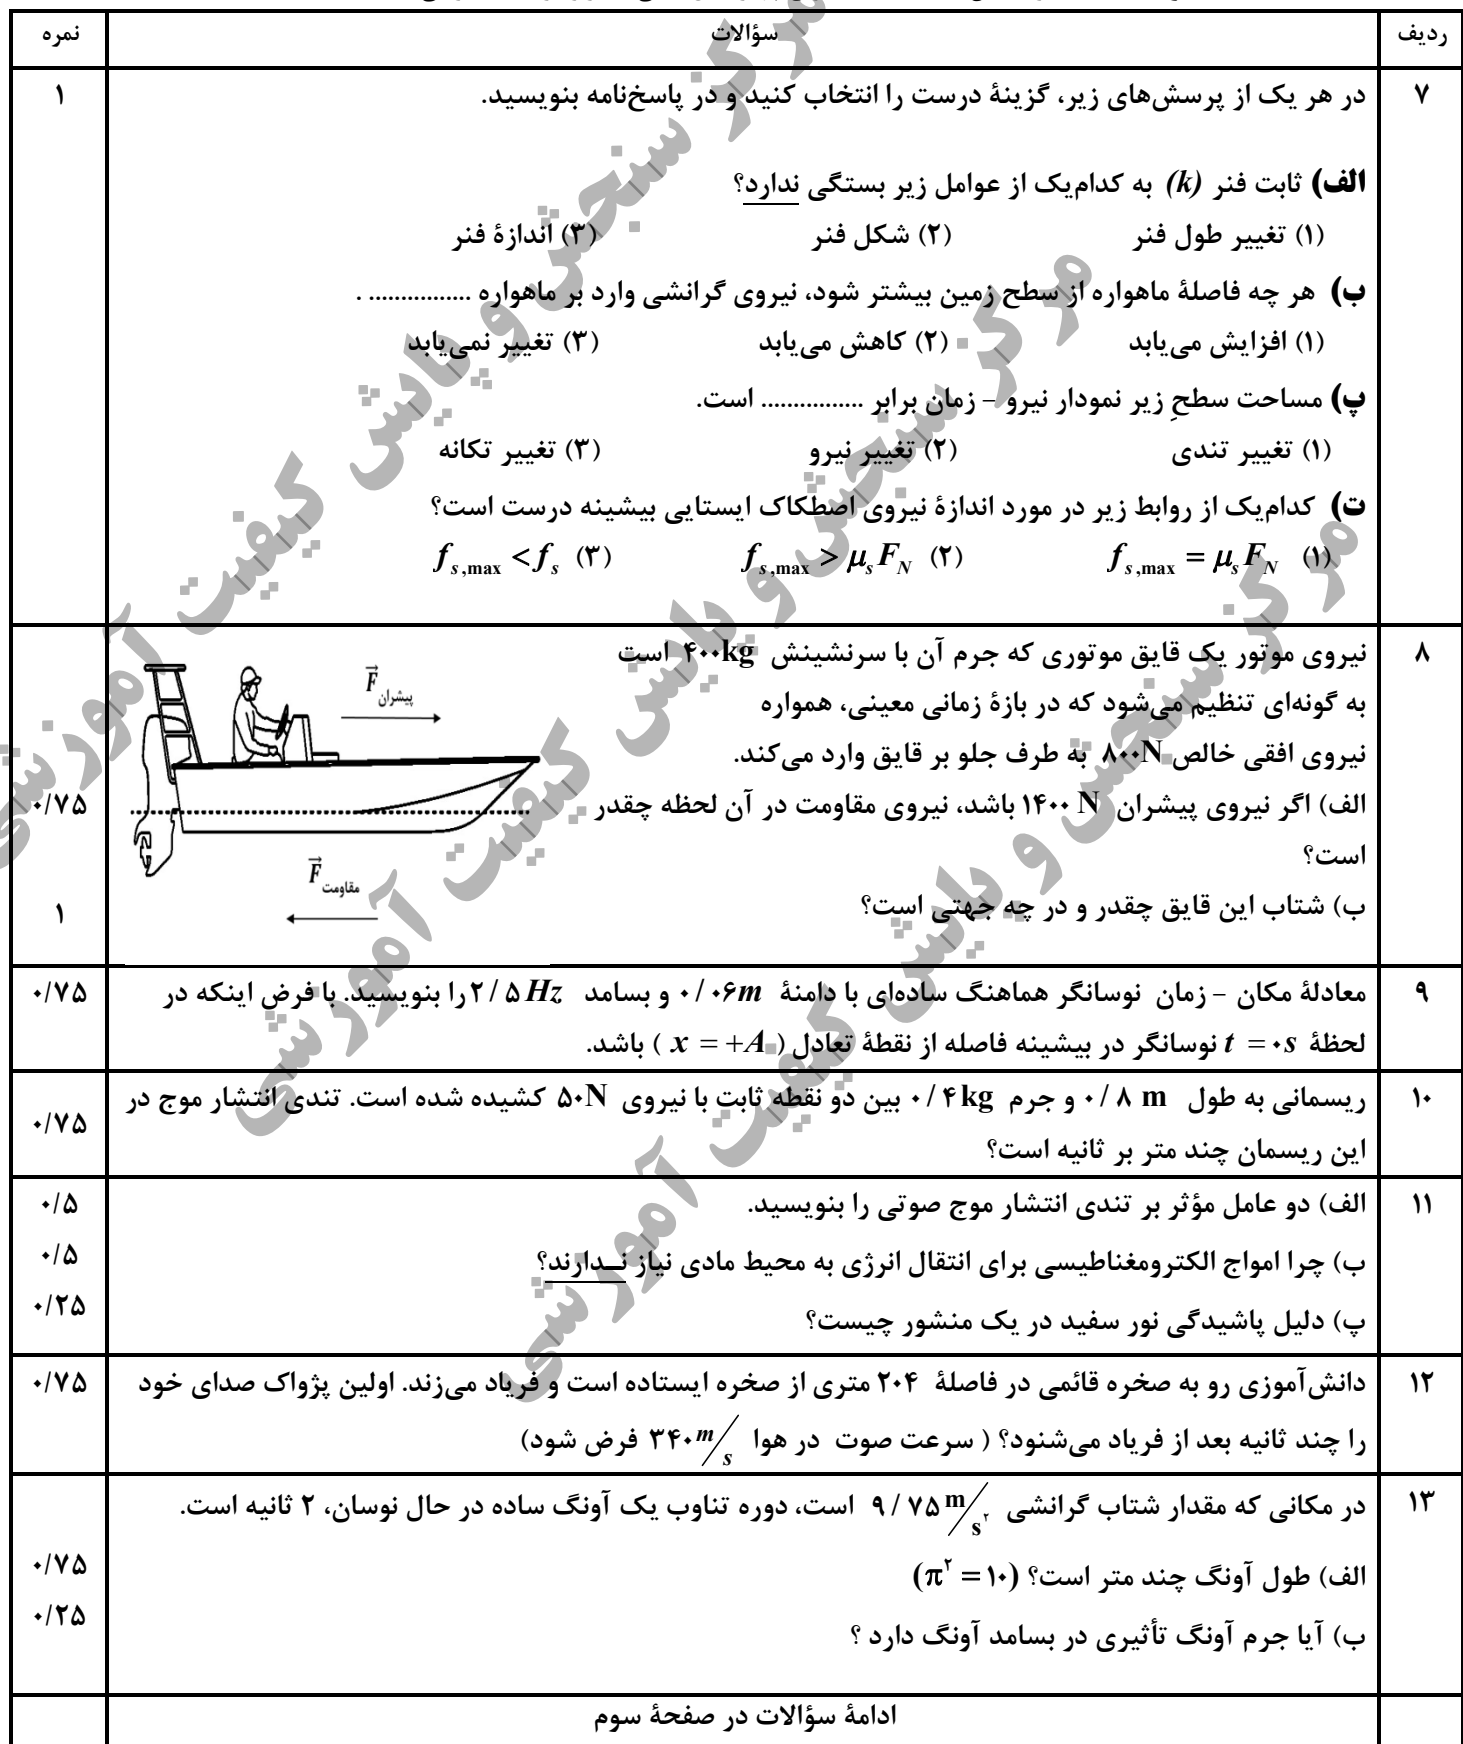 ردیف سؤالات نمره
۷ در هر یک از پرسش‌های زیر، گزینهٔ درست را انتخاب کنید و در پاسخ‌نامه بنویسید. ۱
الف) ثابت فنر (k) به کدام‌یک از عوامل زیر بستگی ندارد؟
(۱) تغییر طول فنر (۲) شکل فنر (۳) اندازهٔ فنر
ب) هر چه فاصلهٔ ماهواره از سطح زمین بیشتر شود، نیروی گرانشی وارد بر ماهواره ................ .
(۱) افزایش می‌یابد (۲) کاهش می‌یابد (۳) تغییر نمی‌یابد
پ) مساحت سطحِ زیر نمودار نیرو – زمان برابر ................ است.
(۱) تغییر تندی (۲) تغییر نیرو (۳) تغییر تکانه
ت) کدام‌یک از روابط زیر در مورد اندازهٔ نیروی اصطکاک ایستایی بیشینه درست است؟
(۱) f s,max = μs FN (۲) f s,max > μs FN (۳) f s,max < f s
۸ نیروی موتور یک قایق موتوری که جرم آن با سرنشینش ۴۰۰kg است
به گونه‌ای تنظیم می‌شود که در بازهٔ زمانی معینی، همواره
نیروی افقی خالص ۸۰۰N به طرف جلو بر قایق وارد می‌کند.
الف) اگر نیروی پیشران ۱۴۰۰ N باشد، نیروی مقاومت در آن لحظه چقدر ۰/۷۵
است؟
ب) شتاب این قایق چقدر و در چه جهتی است؟ ۱
F پیشران
F مقاومت
۹ معادلهٔ مکان – زمان نوسانگر هماهنگ ساده‌ای با دامنهٔ ۰/۰۶m و بسامد ۲/۵Hz را بنویسید. با فرض اینکه در ۰/۷۵
لحظهٔ t = ۰s نوسانگر در بیشینه فاصله از نقطهٔ تعادل ( x = +A ) باشد.
۱۰ ریسمانی به طول ۰/۸ m و جرم ۰/۴kg بین دو نقطه ثابت با نیروی ۵۰N کشیده شده است. تندی انتشار موج در ۰/۷۵
این ریسمان چند متر بر ثانیه است؟
۱۱ الف) دو عامل مؤثر بر تندی انتشار موج صوتی را بنویسید. ۰/۵
ب) چرا امواج الکترومغناطیسی برای انتقال انرژی به محیط مادی نیاز نــدارند؟ ۰/۵
پ) دلیل پاشیدگی نور سفید در یک منشور چیست؟ ۰/۲۵
۱۲ دانش‌آموزی رو به صخره قائمی در فاصلهٔ ۲۰۴ متری از صخره ایستاده است و فریاد می‌زند. اولین پژواک صدای خود ۰/۷۵
را چند ثانیه بعد از فریاد می‌شنود؟ ( سرعت صوت در هوا ۳۴۰ m/s فرض شود)
۱۳ در مکانی که مقدار شتاب گرانشی ۹/۷۵ m/s۲ است، دوره تناوب یک آونگ ساده در حال نوسان، ۲ ثانیه است.
الف) طول آونگ چند متر است؟ (π۲ = ۱۰) ۰/۷۵
ب) آیا جرم آونگ تأثیری در بسامد آونگ دارد ؟ ۰/۲۵
ادامهٔ سؤالات در صفحهٔ سوم
مرکز سنجش و پایش کیفیت آموزشی
مرکز سنجش و پایش کیفیت آموزشی
مرکز سنجش و پایش کیفیت آموزشی